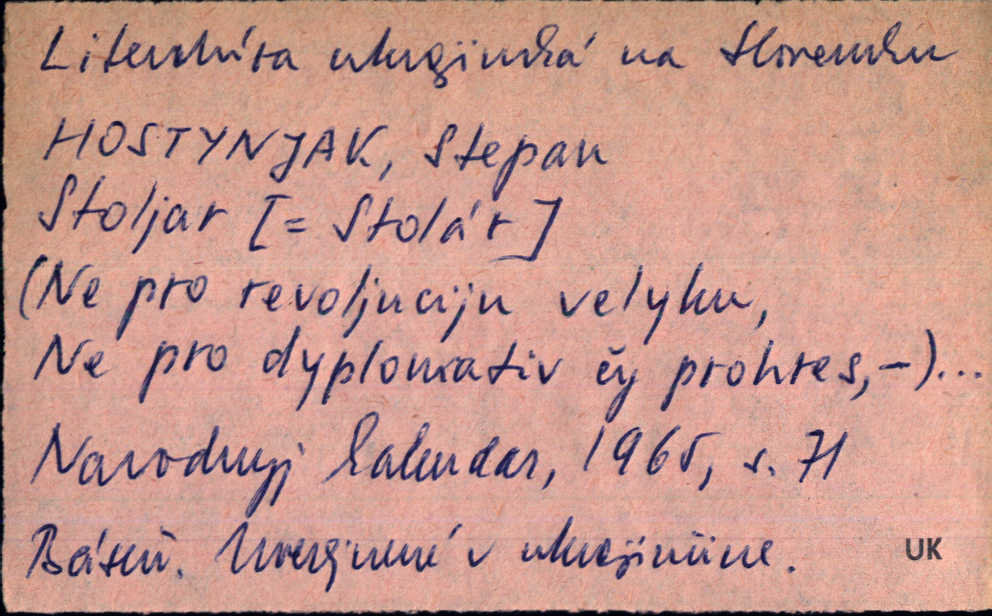 Literatúra ukrajinská na Slovensku
HOSTYNJAK, Stepan
Stoljar [= Stolár]
(Ne pro revoljuciju velyku,
Ne pro dyplomativ čy prohres,-)...
Narodnyj kalendar, 1965, s. 71
Báseň. Uverejnené v ukrajinčine.
UK